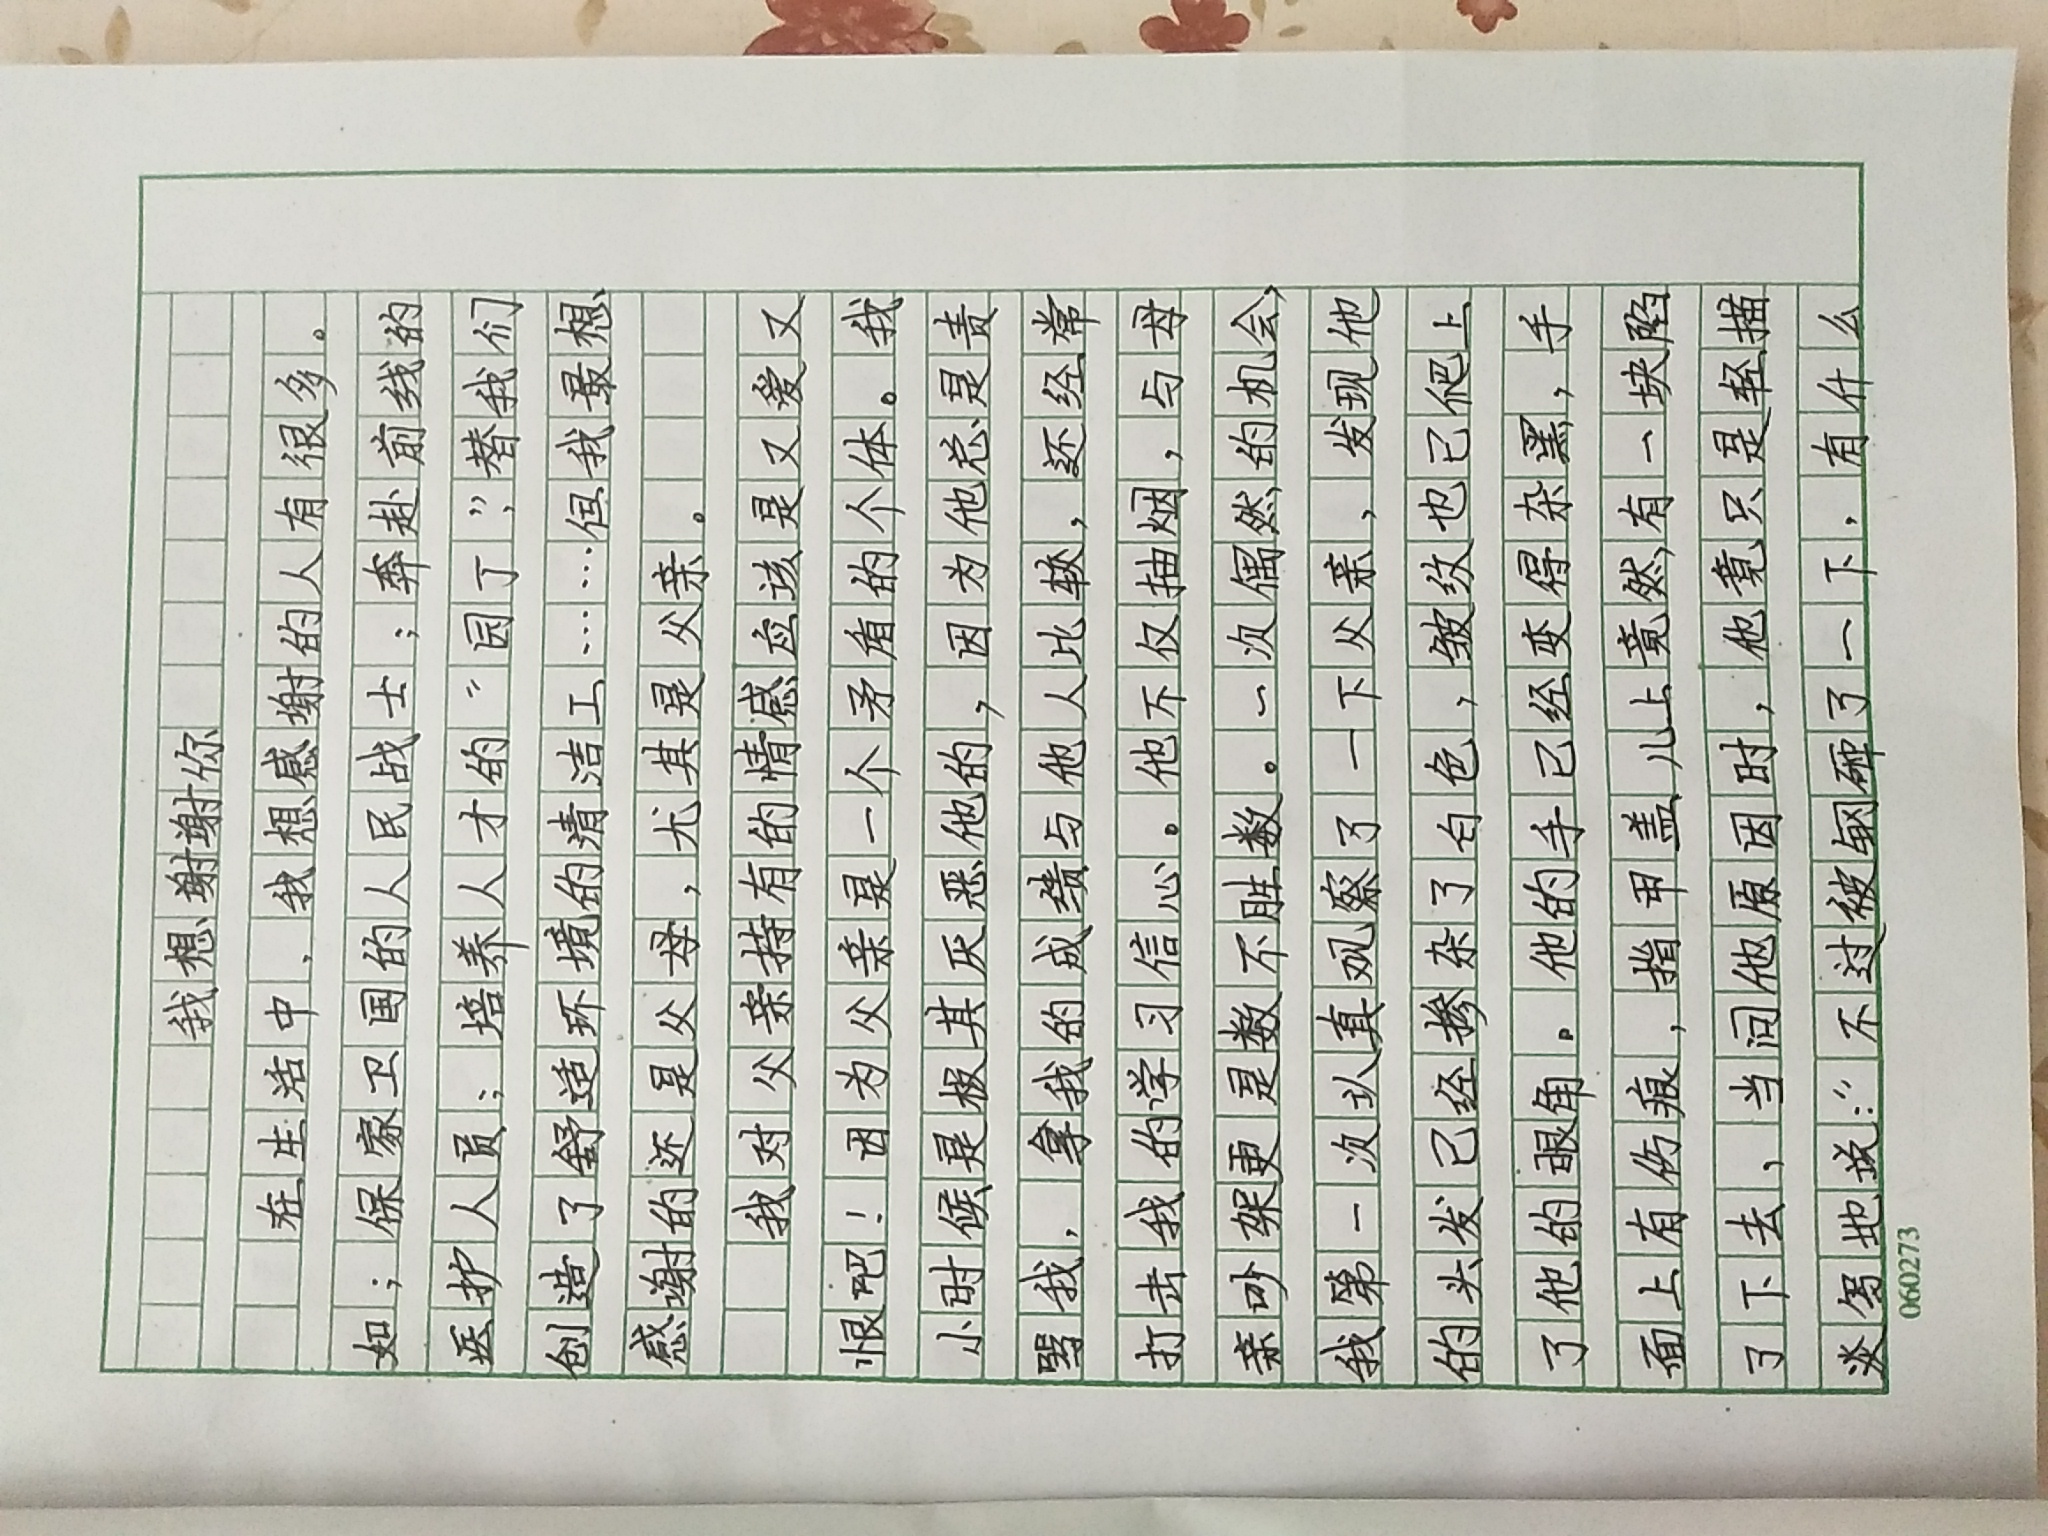 我想谢谢你
在生活中，我想感谢的人有很多。
如；保家卫国的人民战士；奔赴前线的
医护人员；培养人才的“园丁”；替我们
创造了舒适环境的清洁工……但我最想、
感谢的还是父母，尤其是父亲。
我对父亲持有的情感应该是又爱又
恨吧！因为父亲是一个矛盾的个体。我
小时候是极其厌恶他的，因为他总是责
骂我，拿我的成绩与他人比较，还经常
打击我的学习信心。他不仅抽烟，与母
亲吵架更是数不胜数。一次偶然的机会，
我第一次认真观察了一下父亲，发现他
的头发已经掺杂了白色，皱纹也已爬上
了他的眼角。他的手已经变得杂黑，手
面上有伤痕，指甲盖儿上竟然有一块陷
了下去，当问他原因时，他竟只是轻描
淡写地说：“不过被钢砸了一下，有什么
060273